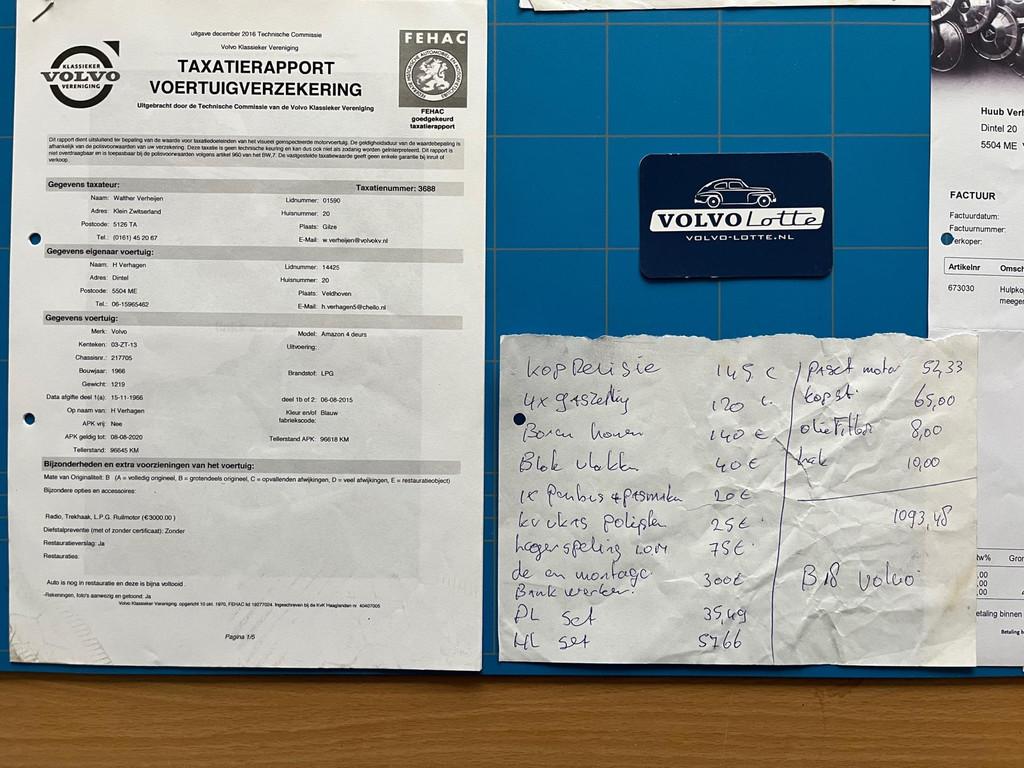 uitgave december 2016 Technische Commissie
Volvo Klassieker Vereniging
KLASSIEKER
VOLVO
VERENIGING
TAXATIERAPPORT
VOERTUIGVERZEKERING
Uitgebracht door de Technische Commissie van de Volvo Klassieker Vereniging
FEHAC
FEHAC
goedgekeurd
taxatierapport
Dit rapport dient uitsluitend ter bepaling van de waarde voor taxatiedoeleinden van het visueel geinspecteerde motorvoertuig. De geldigheidsduur van de waardebepaling is
afhankelijk van de polisvoorwaarden van uw verzekering. Deze taxatie is geen technische keuring en kan dus ook niet als zodanig worden geïnterpreteerd. Dit rapport is
niet overdraagbaar en is toepasbaar bij de polisvoorwaarden volgens artikel 960 van het BW,7. De vastgestelde taxatiewaarde geeft geen enkele garantie bij inruil of
verkoop.
Gegevens taxateur: Taxatienummer: 3688
Naam: Walther Verheijen Lidnummer: 01590
Adres: Klein Zwitserland Huisnummer: 20
Postcode: 5126 TA Plaats: Gilze
Tel.: (0161) 45 20 67 E-Mail: w.verheijen@volvokv.nl
Gegevens eigenaar voertuig:
Naam: H Verhagen Lidnummer: 14425
Adres: Dintel Huisnummer: 20
Postcode: 5504 ME Plaats: Veldhoven
Tel.: 06-15965462 E-Mail: h.verhagen5@chello.nl
Gegevens voertuig:
Merk: Volvo Model: Amazon 4 deurs
Kenteken: 03-ZT-13 Uitvoering:
Chassisnr.: 217705
Bouwjaar: 1966 Brandstof: LPG
Gewicht: 1219
Data afgifte deel 1(a): 15-11-1966 deel 1b of 2: 06-08-2015
Op naam van: H Verhagen Kleur en/of fabriekscode: Blauw
APK vrij: Nee
APK geldig tot: 08-08-2020 Tellerstand APK: 96618 KM
Tellerstand: 96645 KM
Bijzonderheden en extra voorzieningen van het voertuig:
Mate van Originaliteit: B (A = volledig origineel, B = grotendeels origineel, C = opvallenden afwijkingen, D = veel afwijkingen, E = restauratieobject)
Bijzondere opties en accessoires:
Radio, Trekhaak, L.P.G. Ruilmotor (€3000.00 )
Diefstalpreventie (met of zonder certificaat): Zonder
Restauratieverslag: Ja
Restauraties:
Auto is nog in restauratie en deze is bijna voltooid .
-Rekeningen, foto's aanwezig en getoond: Ja
Volvo Klassieker Vereniging. opgericht 10 okt. 1970, FEHAC lid 19277024. Ingeschreven bij de KvK Haaglanden nr 40407005
Pagina 1/5
VOLVO Lotte
VOLVO-LOTTE.NL
koprevisie 145 €
4x gaszetting 120 €
Boren honen 140 €
Blok vlakken 40 €
20 €
krukas polijsten 25 €
lagerspeling 75 €
de en montage 300 €
Bankwerker
DL set 35,49
HL set 57,66
p.set motor 52,33
65,00
oliefilter 8,00
10,00
1093,48
B18 Volvo
Huub Verh
Dintel 20
5504 ME V
FACTUUR
Factuurdatum:
Factuurnummer:
erkoper:
Artikelnr Omsch
673030 Hulpko
meege
tw% Gro
,00
,00
,00
etaling binnen
Betaling b